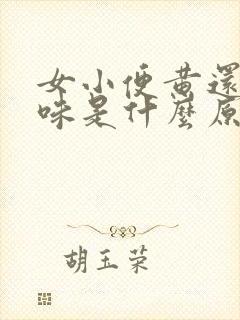 女小便黄還
味是什麼原
胡玉荣